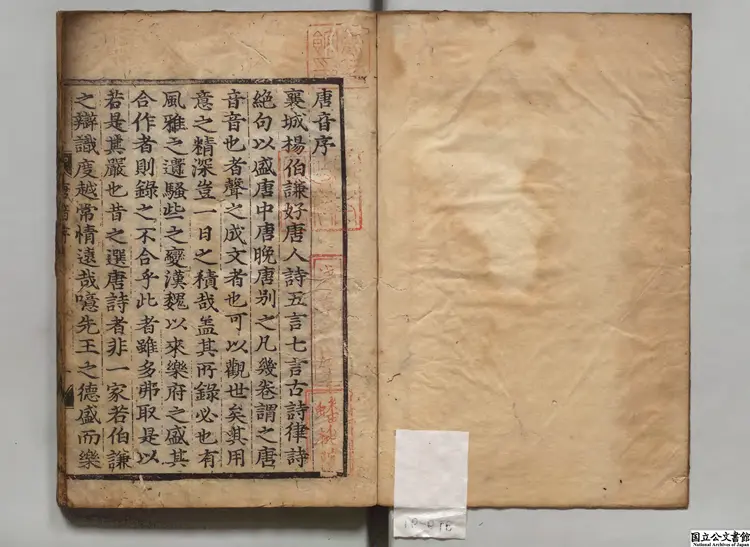 唐音序
襄城楊伯謙好唐人詩五言七言古詩律詩
絶句以盛唐中唐晚唐别之凡幾卷謂之唐
音音也者聲之成文者也可以觀世矣其用
意之精深豈一日之積哉盖其所錄必也有
風雅之遺騷些之變漢魏以來樂府之盛其
合作者則錄之不合乎此者雖多弗取是以
若是其嚴也昔之選唐詩者非一家若伯謙
之辯識度越常情遠哉噫先王之德盛而樂
国立公文書館
National Archives of Japan